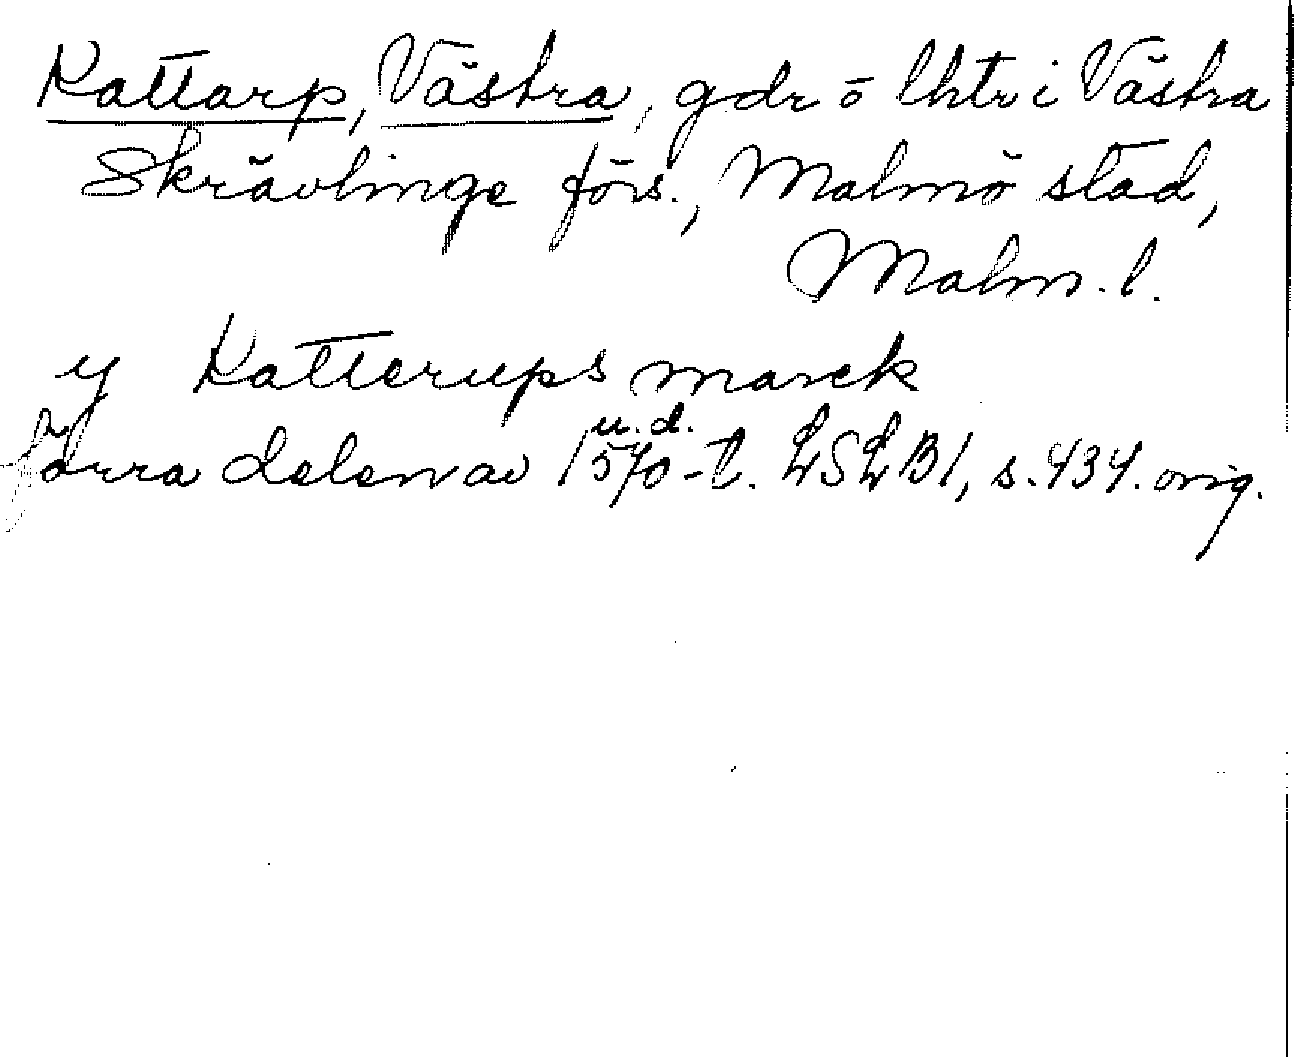 Kattarp, Västra, gdr o lhtr i Västra
Skrävlinge förs., Malmö stad,
Malm. l.
y Katterups marck
u.d.
förra delen av 1570-t. LSLB1, s. 434. orig.